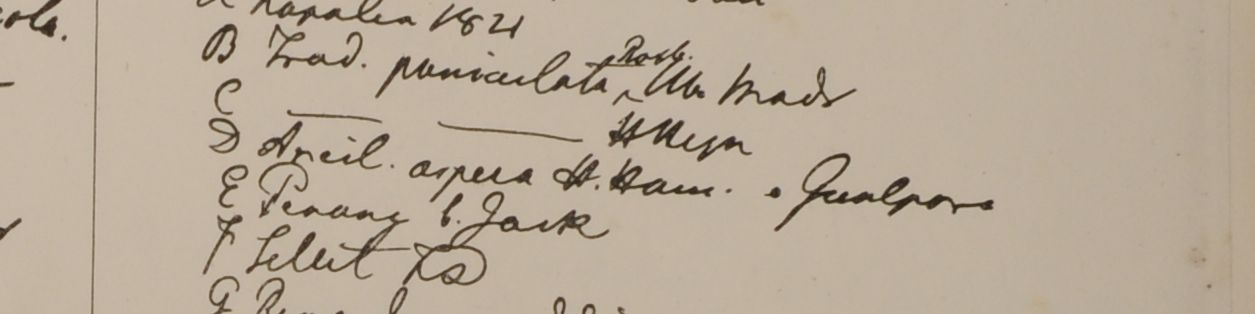 cola.
A Napalia 1821
B Trad. paniculata Roxb. Hb. Madr
C ——— ——— H Heyn
D Axil. aspera H. Ham. e Gualpara
E Penang b. Jack
F Sillet FD
G